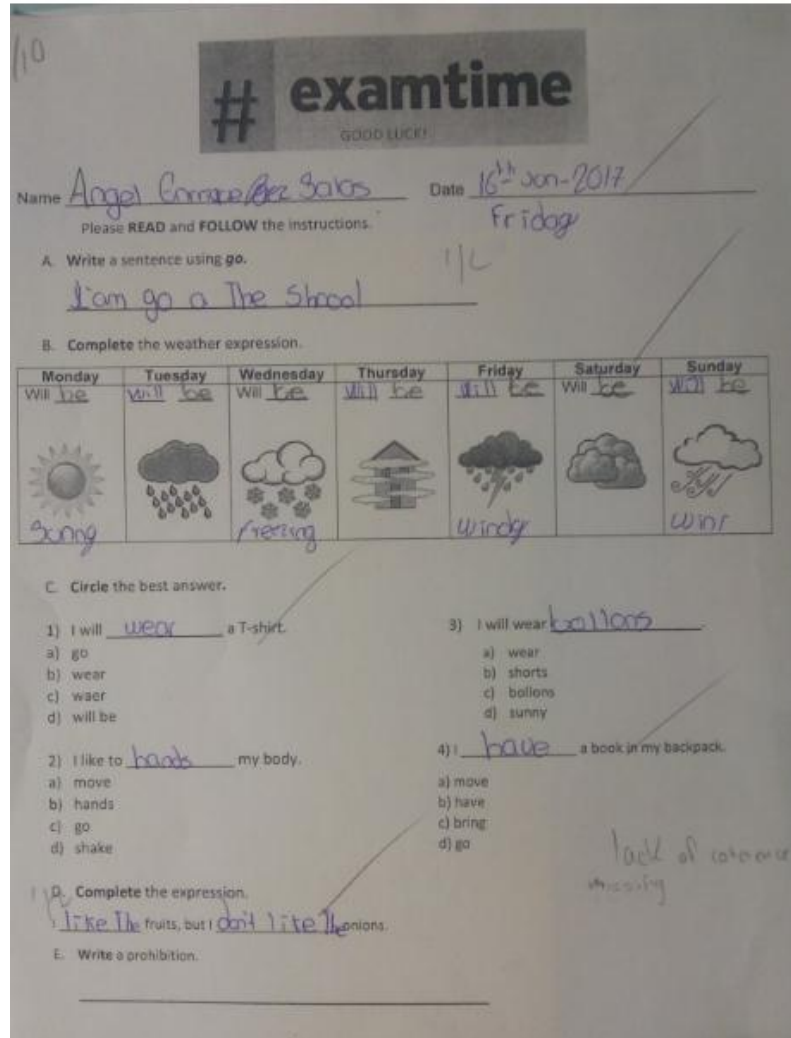 /10
# examtime
GOOD LUCK!
Name Angel Salas Date 16th Jun-2017
Friday
Please READ and FOLLOW the instructions.
A. Write a sentence using go.
I'am go a The Shool
B. Complete the weather expression.
Monday Tuesday Wednesday Thursday Friday Saturday Sunday
Will be will be Will be will be will be Will be will be
Sunng freezing windy winr
C. Circle the best answer.
1) I will wear a T-shirt.
a) go
b) wear
c) waer
d) will be
3) I will wear bollons.
a) wear
b) shorts
c) bollons
d) sunny
2) I like to hands my body.
a) move
b) hands
c) go
d) shake
4) I have a book in my backpack.
a) move
b) have
c) bring
d) go
lack of coherence
missing
D. Complete the expression.
I like The fruits, but I don't like The onions.
E. Write a prohibition.